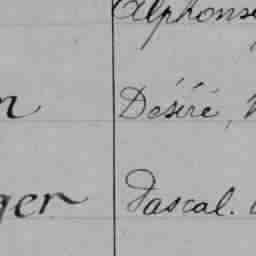 Alphonse
n Désiré,
ger Pascal.